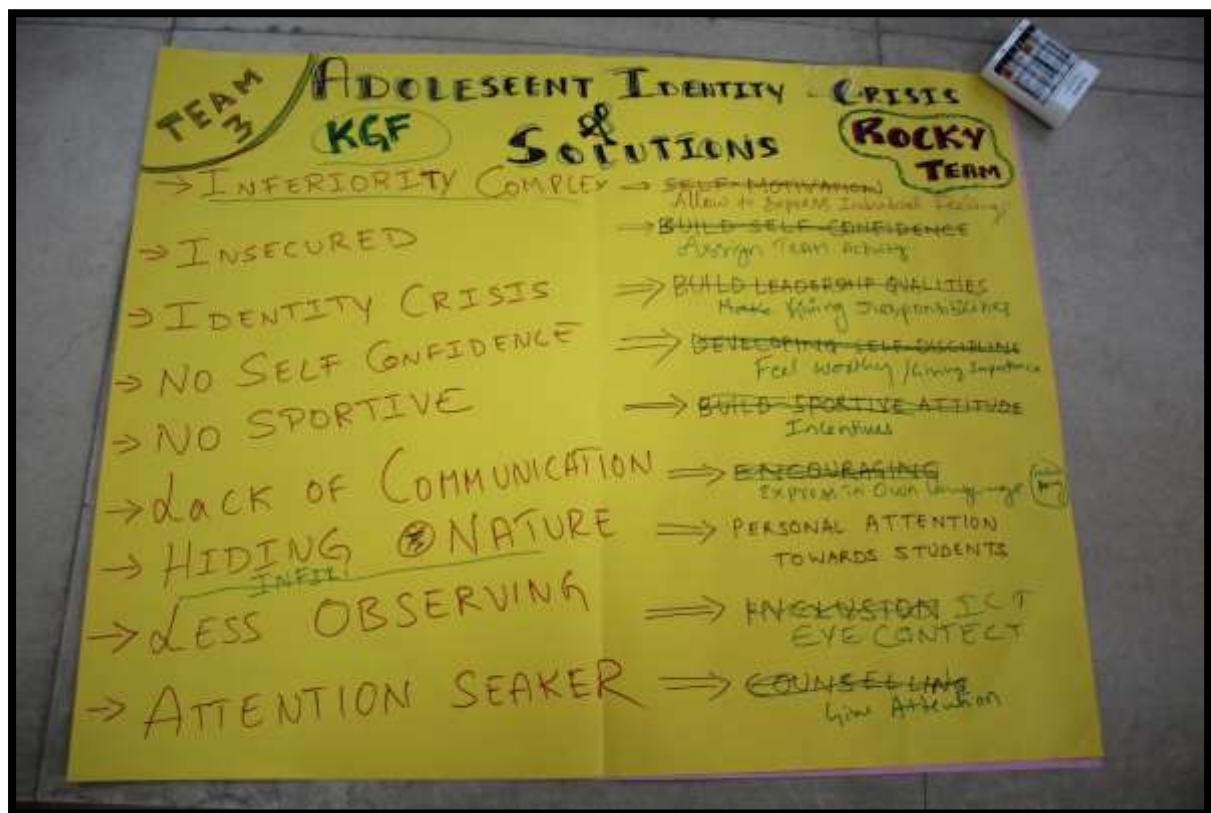 TEAM 3
ADOLESEENT IDENTITY CRISIS
& SOLUTIONS
KGF
ROCKY TEAM
→ INFERIORITY COMPLEX → SELF-MOTIVATION
Allow to Express Individual Feelings
→ INSECURED → BUILD SELF-CONFIDENCE
Assign Team Activity
→ IDENTITY CRISIS ⇒ BUILD LEADERSHIP QUALITIES
Make giving responsibilities
→ NO SELF CONFIDENCE ⇒ DEVELOPING SELF-DISCIPLINE
Feel worthy / Giving Importance
→ NO SPORTIVE ⇒ BUILD SPORTIVE ATTITUDE
Incentives
→ LACK OF COMMUNICATION ⇒ ENCOURAGING
Express in Own language
→ HIDING NATURE ⇒ PERSONAL ATTENTION
TOWARDS STUDENTS
→ LESS OBSERVING ⇒ INCLUSION ICT
EYE CONTECT
→ ATTENTION SEAKER ⇒ COUNSELLING
Give Attention